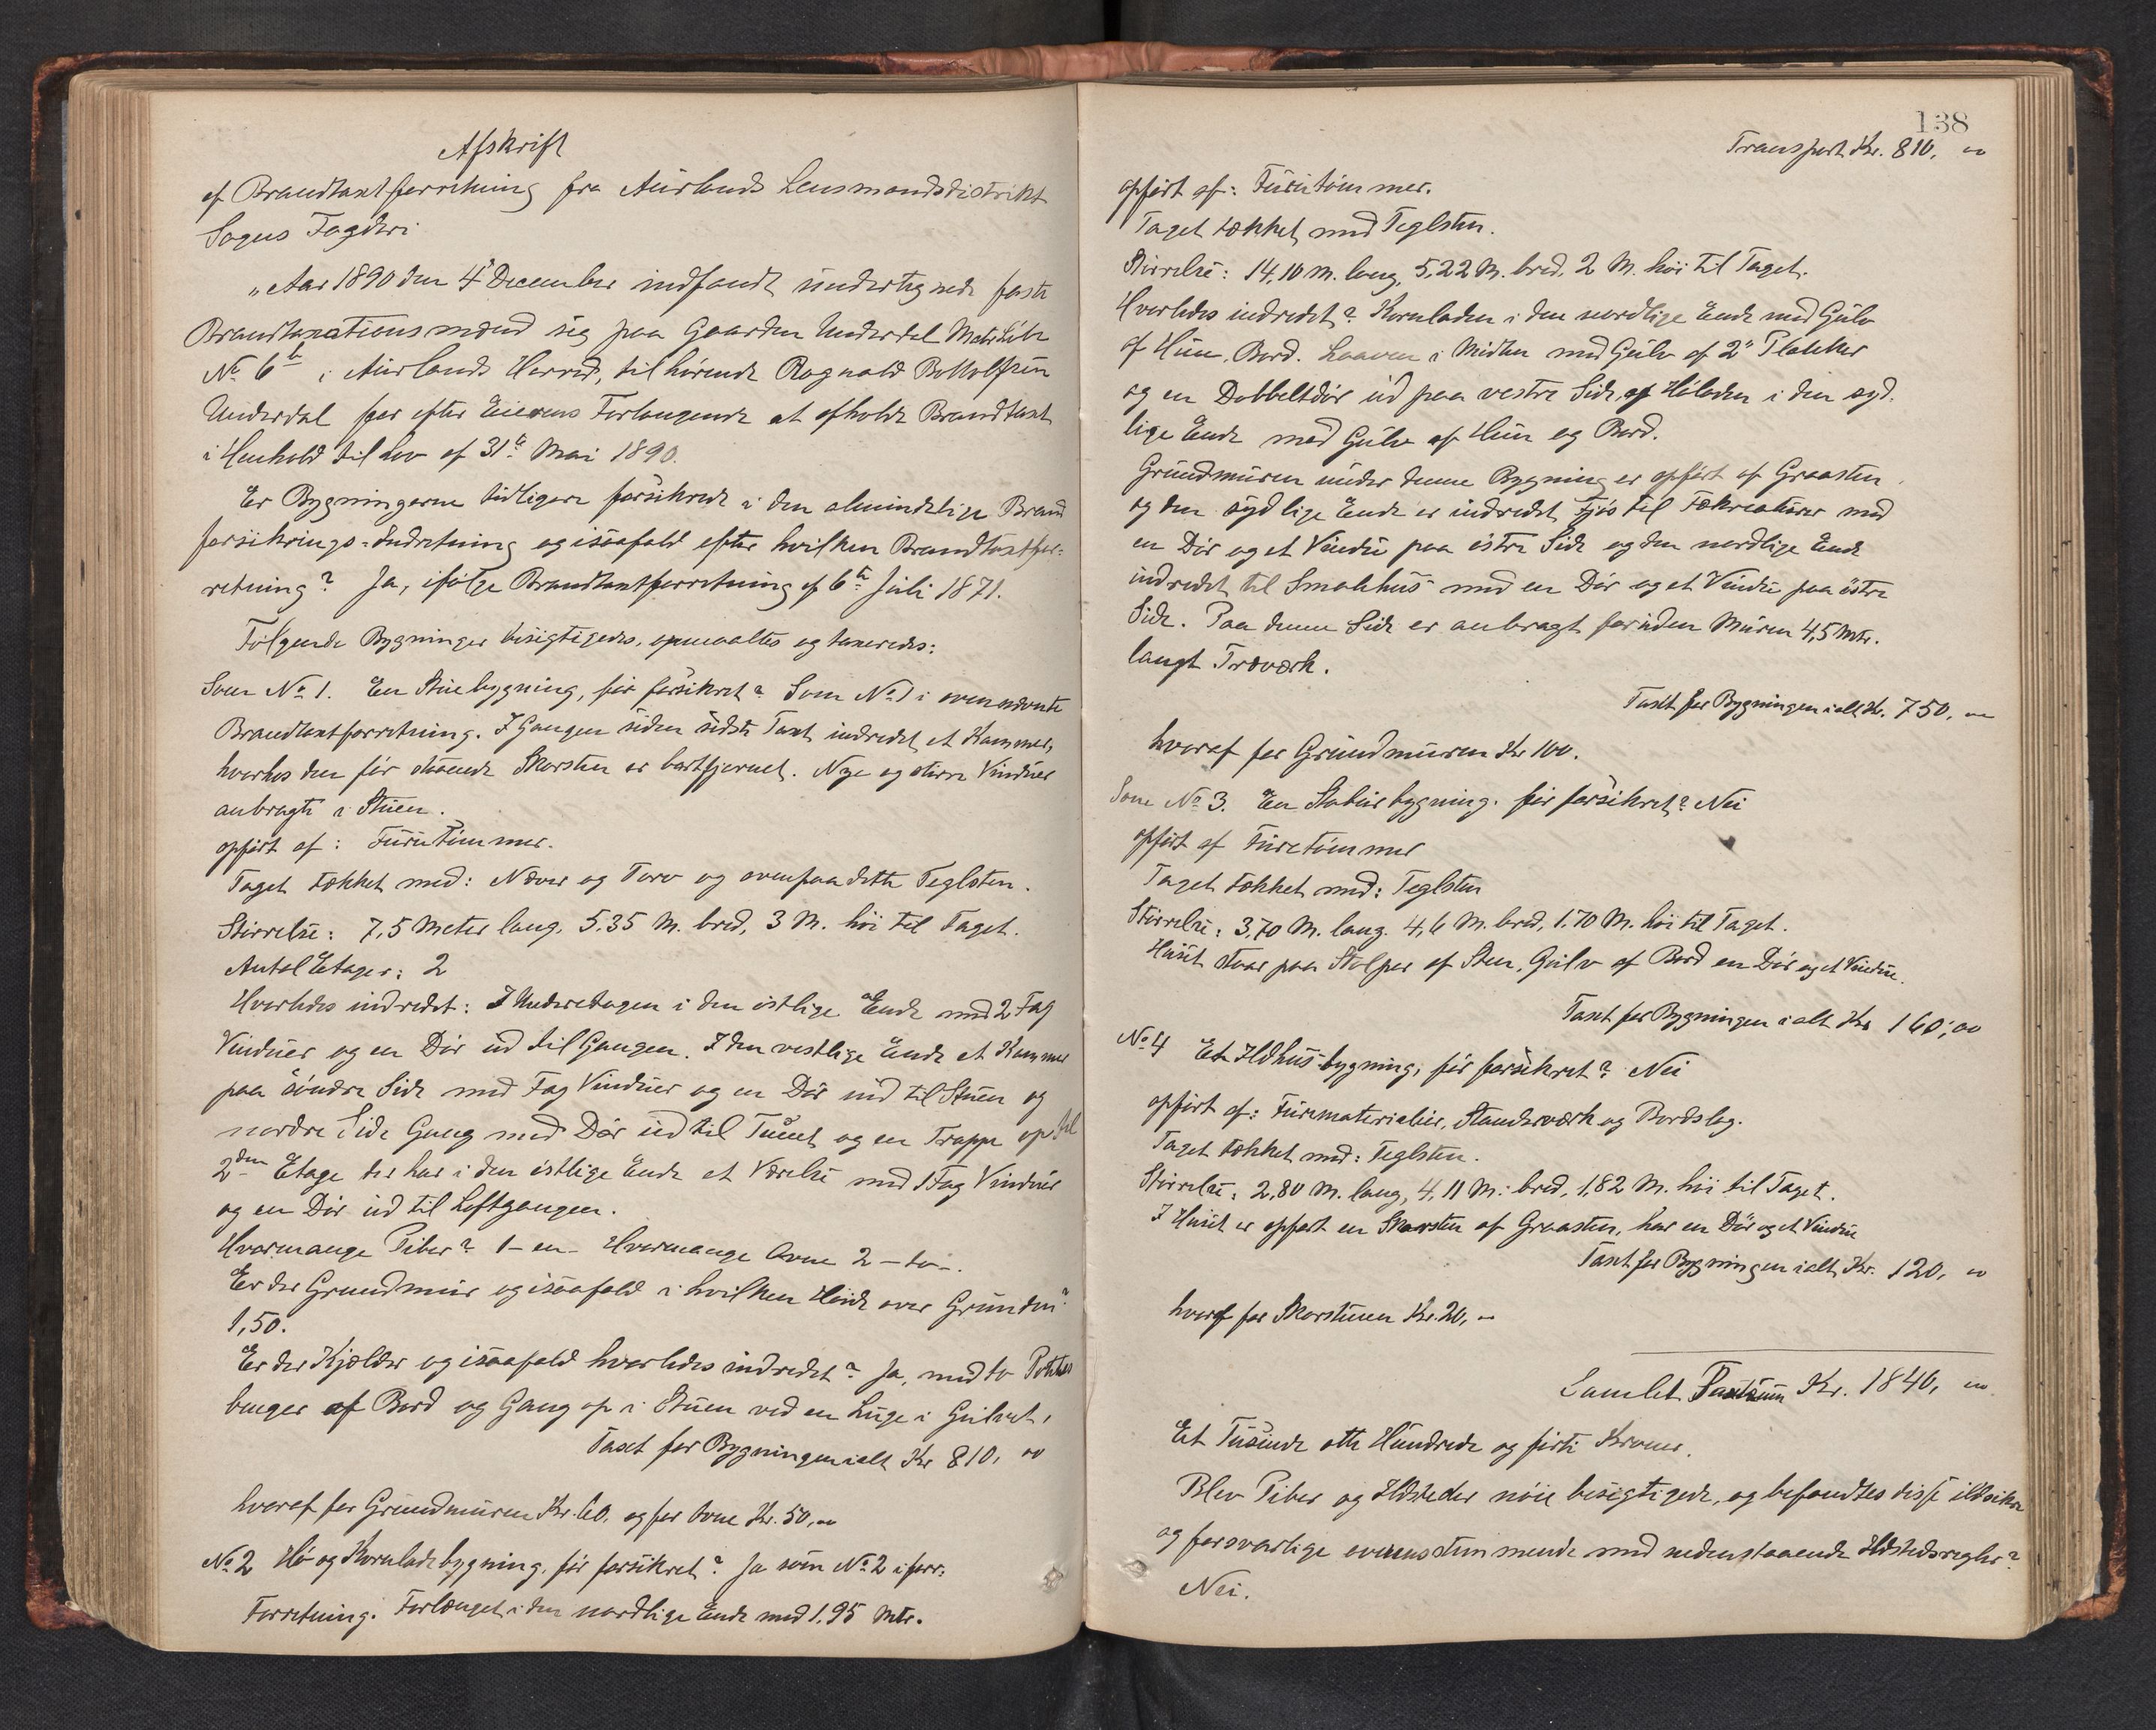 Afskrift
af Brandtaxtforretning fra Aurlands Lensmandsdistrikt
Sogns Fogderi
„Aar 1890 den 4de December indfandt undertegnede faste
Brandtaxationsmænd sig paa Gaarden Underdal Matr. Løbe
No 6b i Aurlands Herred, tilhørende Ragnald Bottolfsen
Underdal for efter Eierens Forlangende at afholde Brandtaxt
i Henhold til Lov af 31te Mai 1890.
Er Bygningerne tidligere forsikrede i den almindelige Brand
forsikrings-Indretning og isaafald efter hvilken Brandtaxtfor-
retning? Ja, ifølge Brandtaxtforretning af 6te Juli 1871.
Følgende Bygninger besigtigedes, opmaaltes og taxeredes:
Som No 1. En Stuebygning, før forsikret? Som No 1 i ovennævnte
Brandtaxtforretning. I Gangen siden sidste Taxt indredet et Kammer,
hvorhos den før staaende Skorsten er bortfjernet. Nye og større Vinduer
anbragte i Stuen.
opført af: Furutømmer.
Taget tækket med: Næver og Torv og ovenpaa dette Teglsten.
Størrelse: 7,5 Meter lang, 5.35 M. bred, 3 M. høi til Taget.
Antal Etager: 2
Hvorledes indredet: I Underetagen i den østlige Ende med 2 Fag
Vinduer og en Dør ud til Gangen. I den vestlige Ende et Kammer
paa søndre Side med Fag Vinduer og en Dør ind til Stuen og
nordre Side Gang med Dør ud til Tunet og en Trappe op til
2den Etage der har i den østlige Ende et Værelse med 1 Fag Vinduer
og en Dør ud til Loftgangen.
Hvormange Piber? 1 - en - Hvormange Ovne 2 - to -.
Er der Grundmur og isaafald i hvilken Høide over Grunden?
1,50.
Er der Kjælder og isaafald hvorledes indredet? Ja, med to Potet
binger af Bord og Gang op i Stuen ved en Luge i Gulvet,
Taxt for Bygningen ialt Kr 810, 00
hvoraf for Grundmuren Kr. 60. og for Ovne Kr. 50,00
No 2 Hø og Kornladebygning, før forsikret? Ja som No 2 i forr:
Forretning. Forlænget i den nordlige Ende med 1.95 Mtr.
138
Transport Kr. 810, 00
opført af: Furutømmer.
Taget tækket med Teglsten.
Størrelse: 14,10 M. lang, 5,22 M. bred, 2 M. høi til Taget.
Hvorledes indredet? Kornladen i den nordlige Ende med Gulv
af Hun, Bord. Laaven i Midten med Gulv af 2" Planker
og en Dobbeltdør ud paa vestre Side, af Høladen i den syd-
lige Ende med Gulv af Hun og Bord.
Grundmuren under denne Bygning er opført af Graasten
og den sydlige Ende er indredet Fjøs til Fækreaturer med
en Dør og et Vindu paa østre Side og den nordlige Ende
indredet til Smalehus med en Dør og et Vindu paa østre
Side. Paa denne Side er anbragt foruden Muren 4,5 Mtr.
langt Træværk.
Taxt for Bygningen ialt Kr. 750, 00
hvoraf for Grundmuren Kr 100.
Som No 3. En Staburbygning. før forsikret? Nei
opført af Furetømmer
Taget tækket med: Teglsten
Størrelse: 3,70 M. lang. 4,6 M. bred, 1.70 M. høi til Taget.
Huset staar paa Stolper af Sten, Gulv af Bord en Dør og et Vindue.
Taxt for Bygningen ialt Kr 160,00
No 4 Et Ildhus-bygning, før forsikret? Nei
opført af: Furematerialier, Standerværk og Bordslag.
Taget tækket med: Teglsten.
Størrelse: 2,80 M. lang, 4,11 M. bred, 1,82 M. høi til Taget.
I Huset er opført en Skorsten af Graasten, har en Dør og et Vindue
Taxt for Bygningen ialt Kr. 120, 00
hvoraf for Skorstenen Kr. 20, 00
Samlet Taxtsum Kr. 1840, 00
Et Tusinde otte Hundrede og førti Kroner.
Blev Piber og Ildsteder nøie besigtigede, og befandtes disse ildsikre
og forsvarlige overensstemmende med nedenstaaende Ildstedsregler?
Nei.